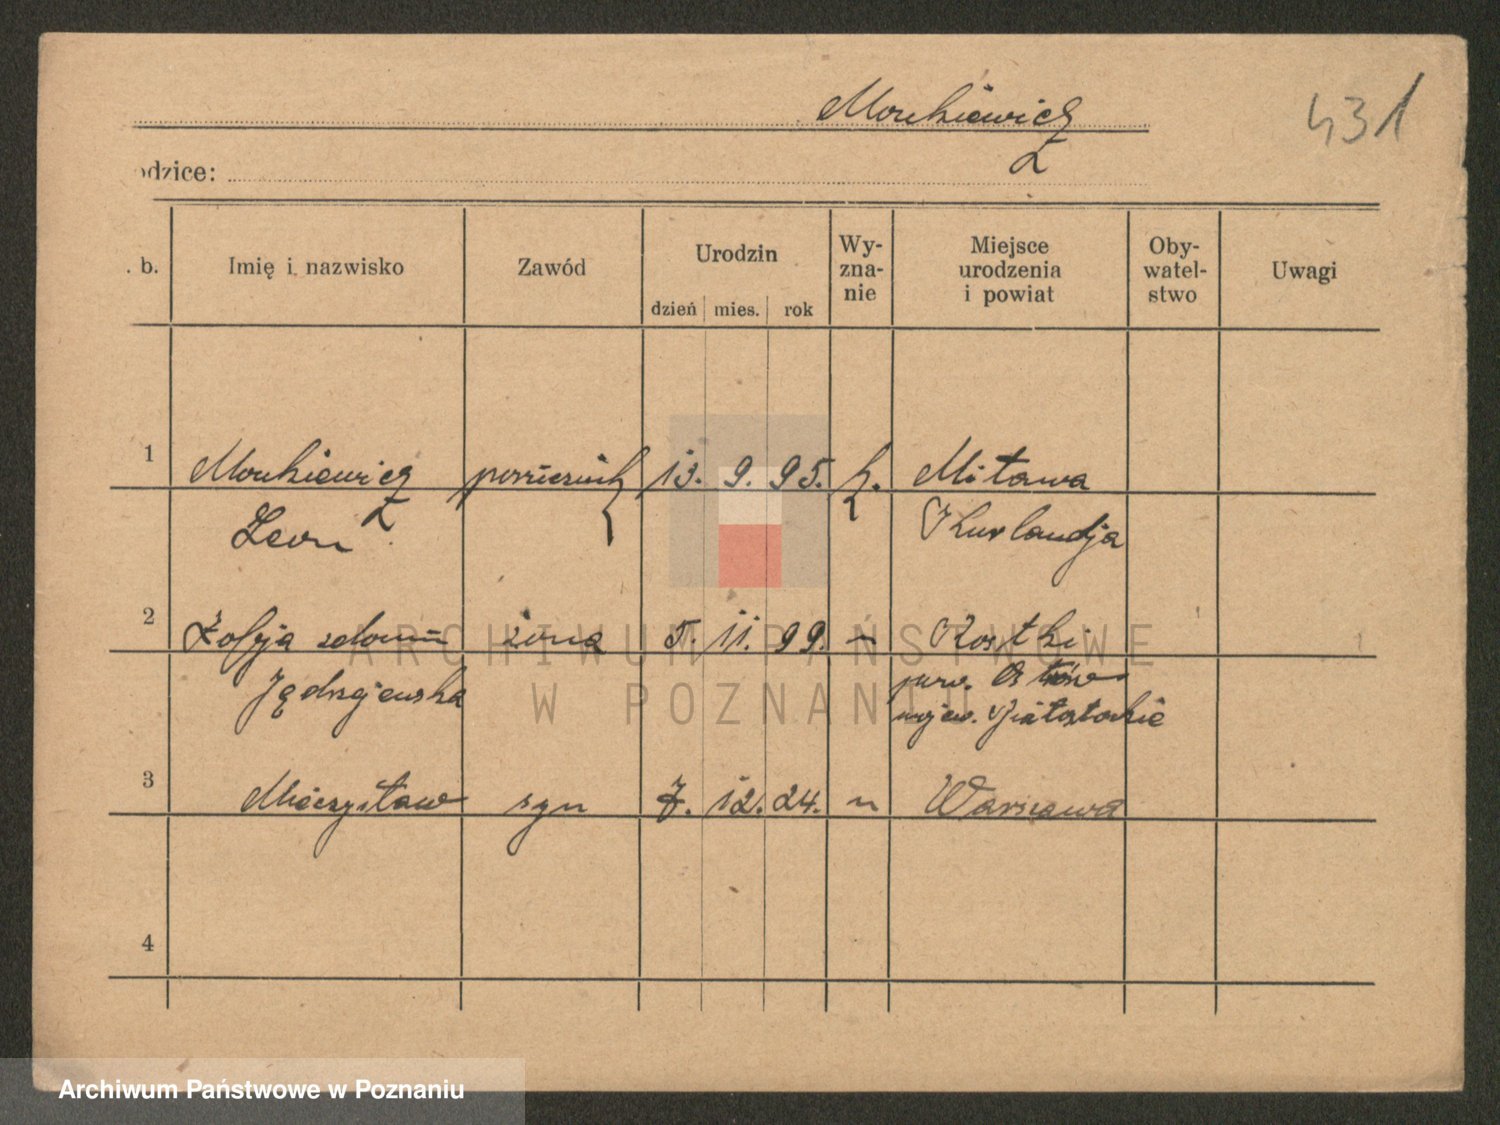 Monkiewicz
431
odzice:
. b.
Imię i nazwisko
Zawód
Urodzin
dzień mies. rok
Wy-
zna-
nie
Miejsce
urodzenia
i powiat
Oby-
watel-
stwo
Uwagi
1 Monkiewicz 13. 9. 95. Mitawa
Leon Kurlandja
2 Zofja żona 5. 11. 99. Kostki
Jędrzejewska pow.
wojew. Białostockie
3 Mieczysław syn 7. 12. 24. Warszawa
4
ARCHIWUM PAŃSTWOWE
W POZNANIU
Archiwum Państwowe w Poznaniu